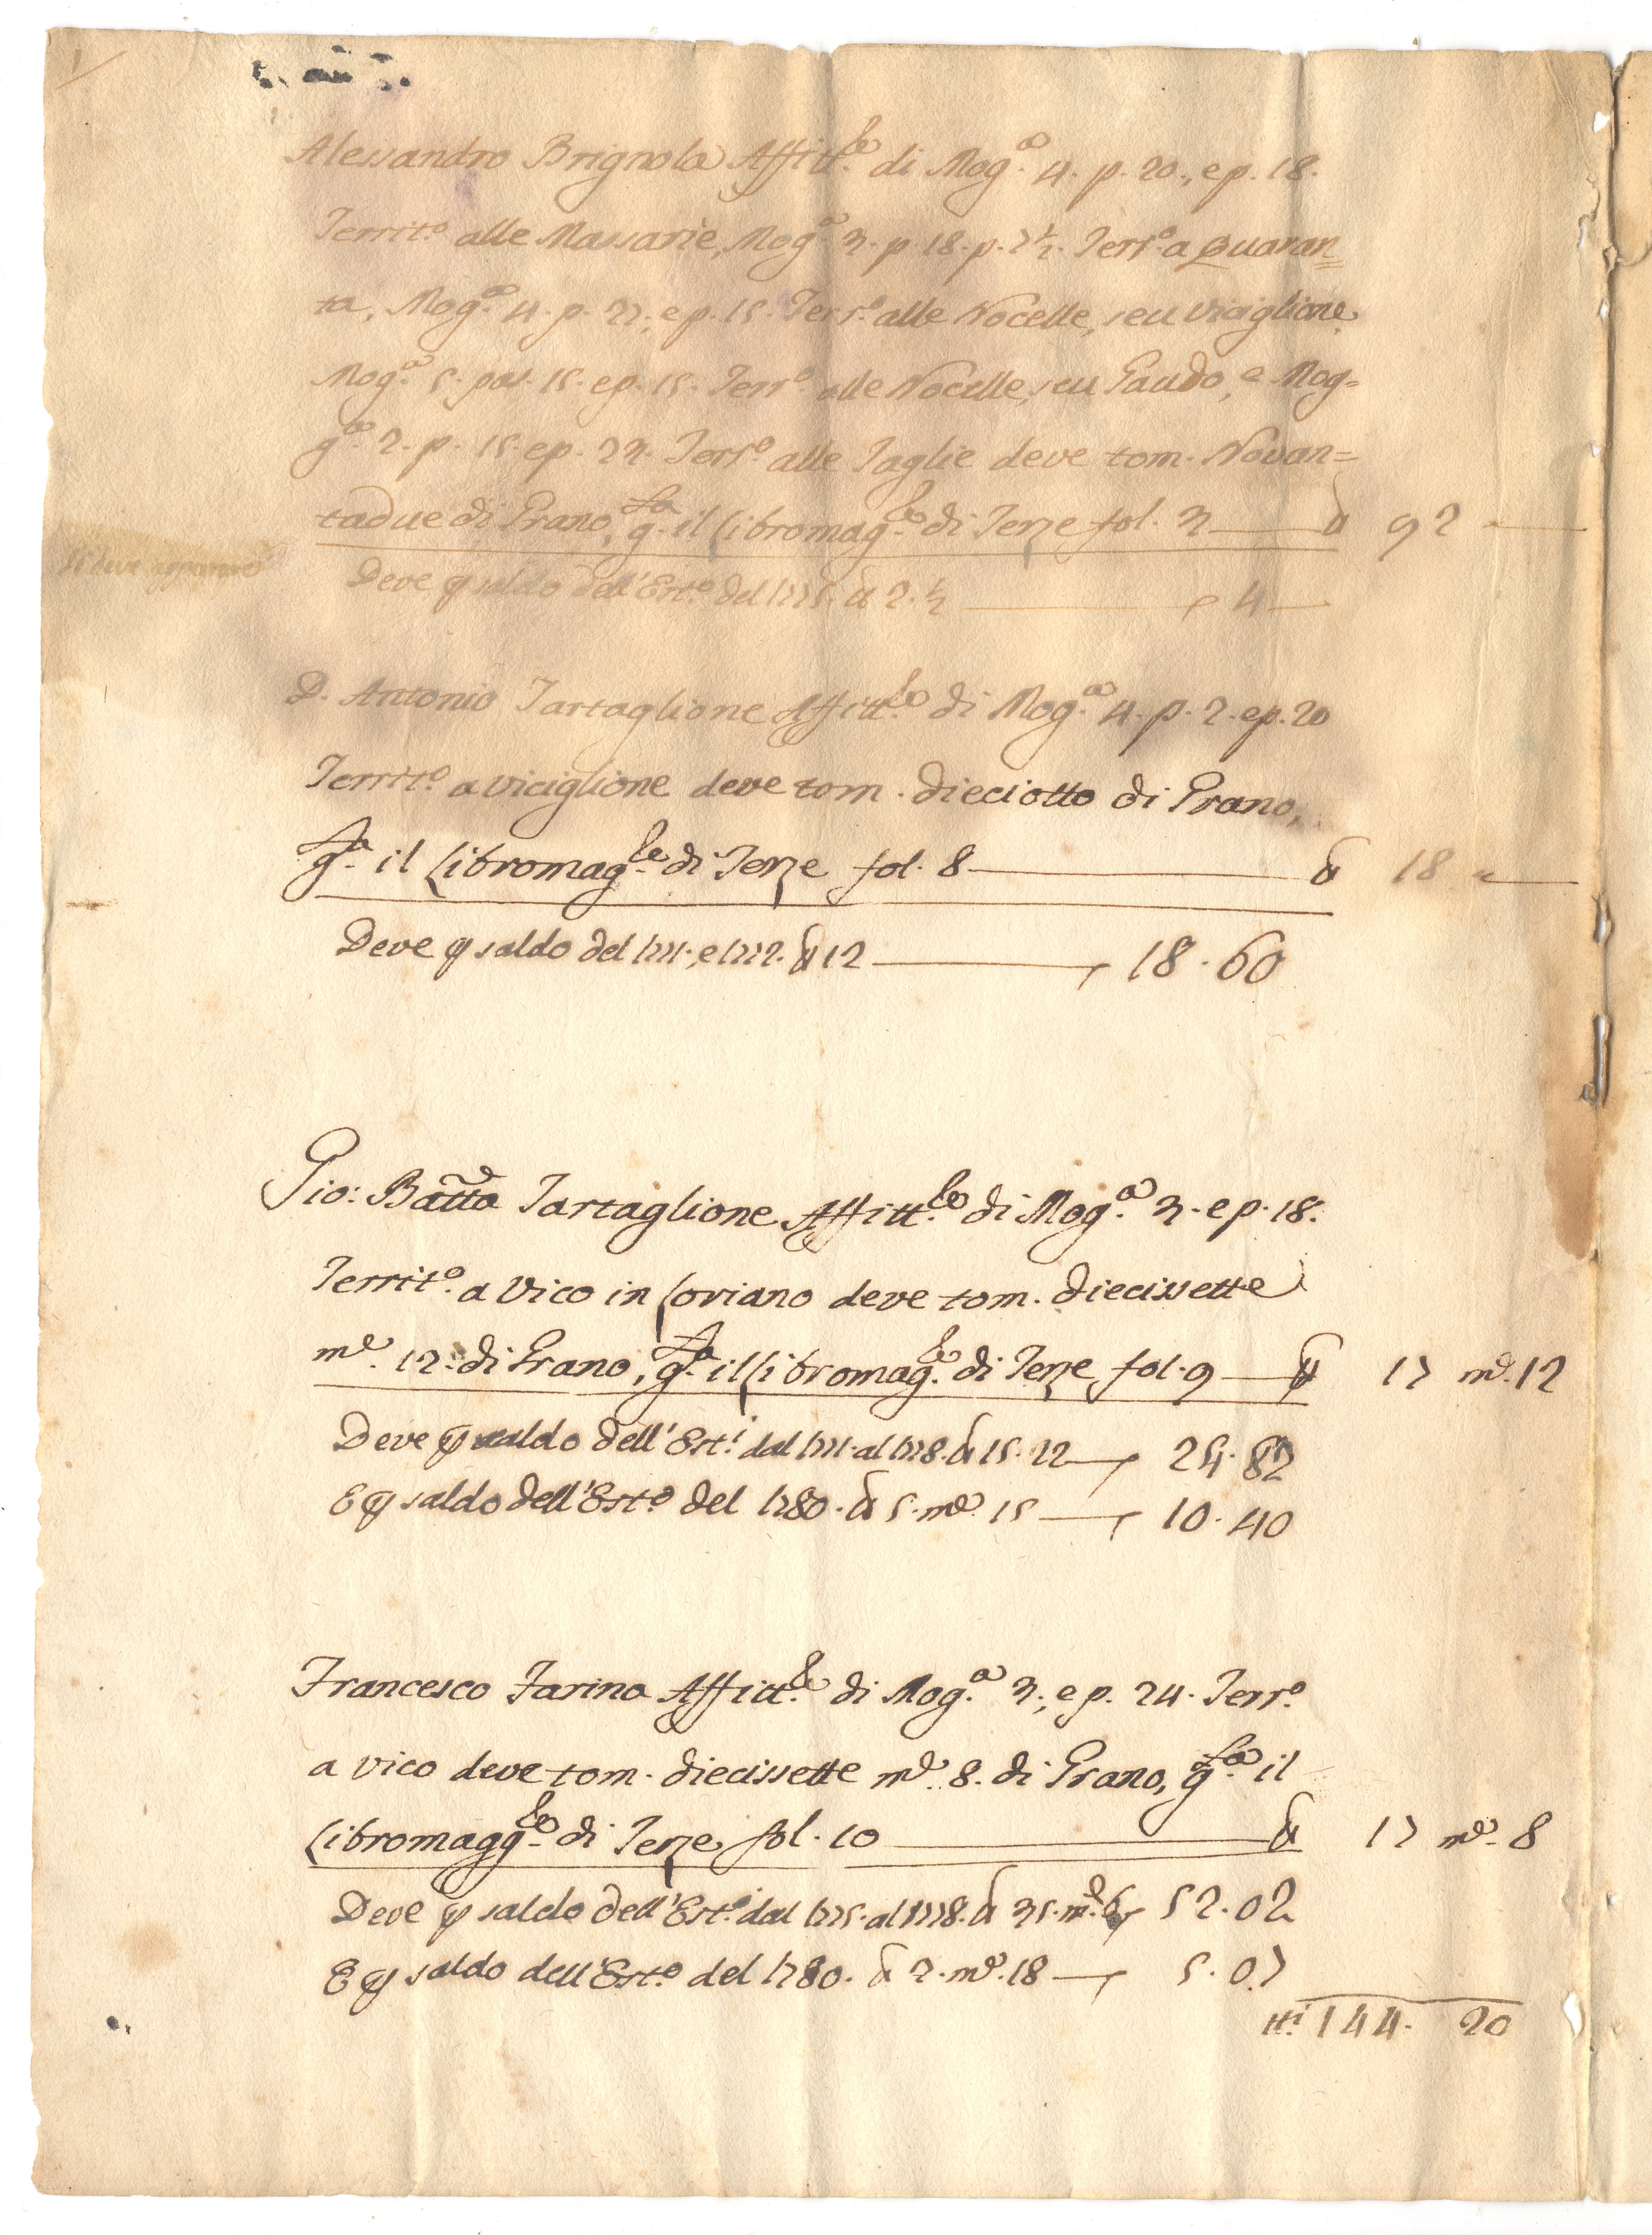 Alessandro Brignola Affitt.re di Mog.a 4. p. 20., e p. 18.
Territ.o alle Massarie, Mog.a 3. p. 18. p. 7 1/2. Terr.o a Quaran=
ta, Mog.a 4. p. 27., e p. 15. Terr.o alle Nocelle, seu Viciglione
Mog.a 5. pas. 15. e p. 15. Terr.o alle Nocelle, seu Gaudo, e Mog=
g.a 2. p. 15. e p. 23. Terr.o alle Taglie deve tom. Novan=
tadue di Grano, g.ta il Libromag.re di Terze fol. 3 — t.a 92 „ —
Si deve appurare
Deve p saldo dell'Est.o del 1775. t.a 2. 1/2 — 4 —
D. Antonio Tartaglione Affitt.re di Mog.a 4. p. 2. e p. 20
Territ.o a Viciglione deve tom. dieciotto di Grano,
g.ta il Libromag.re di Terze fol. 8 — t.a 18 „ —
Deve p saldo del 1771., e 1772. t.a 12 — 18. 60
Gio: Batta Tartaglione Affitt.re di Mog.a 3. e p. 18.
Territ.o a Vico in Loriano deve tom. diecissette
m.e 12. di Grano, g.ta il Libromag.re di Terze fol. 9 — t.a 17 m.e 12
Deve p saldo dell'Est.i dal 1771. al 1778. t.a 15. 22 — 25. 82
E p saldo dell'Est.o del 1780. t.a 5. m.e 15 — 10. 40
Francesco Farina Affitt.re di Mog.a 3., e p. 24. Terr.o
a Vico deve tom. diecissette m.e 8. di Grano, g.ta il
Libromagg.re di Terze fol. 10 — t.a 17 m.e 8
Deve p saldo dell'Est.e dal 1775. al 1778. t.a 35. m.e 6 52. 02
E p saldo dell'Est.o del 1780. t.a 2. m.e 18 — 5. 07
tt.i 144. 20